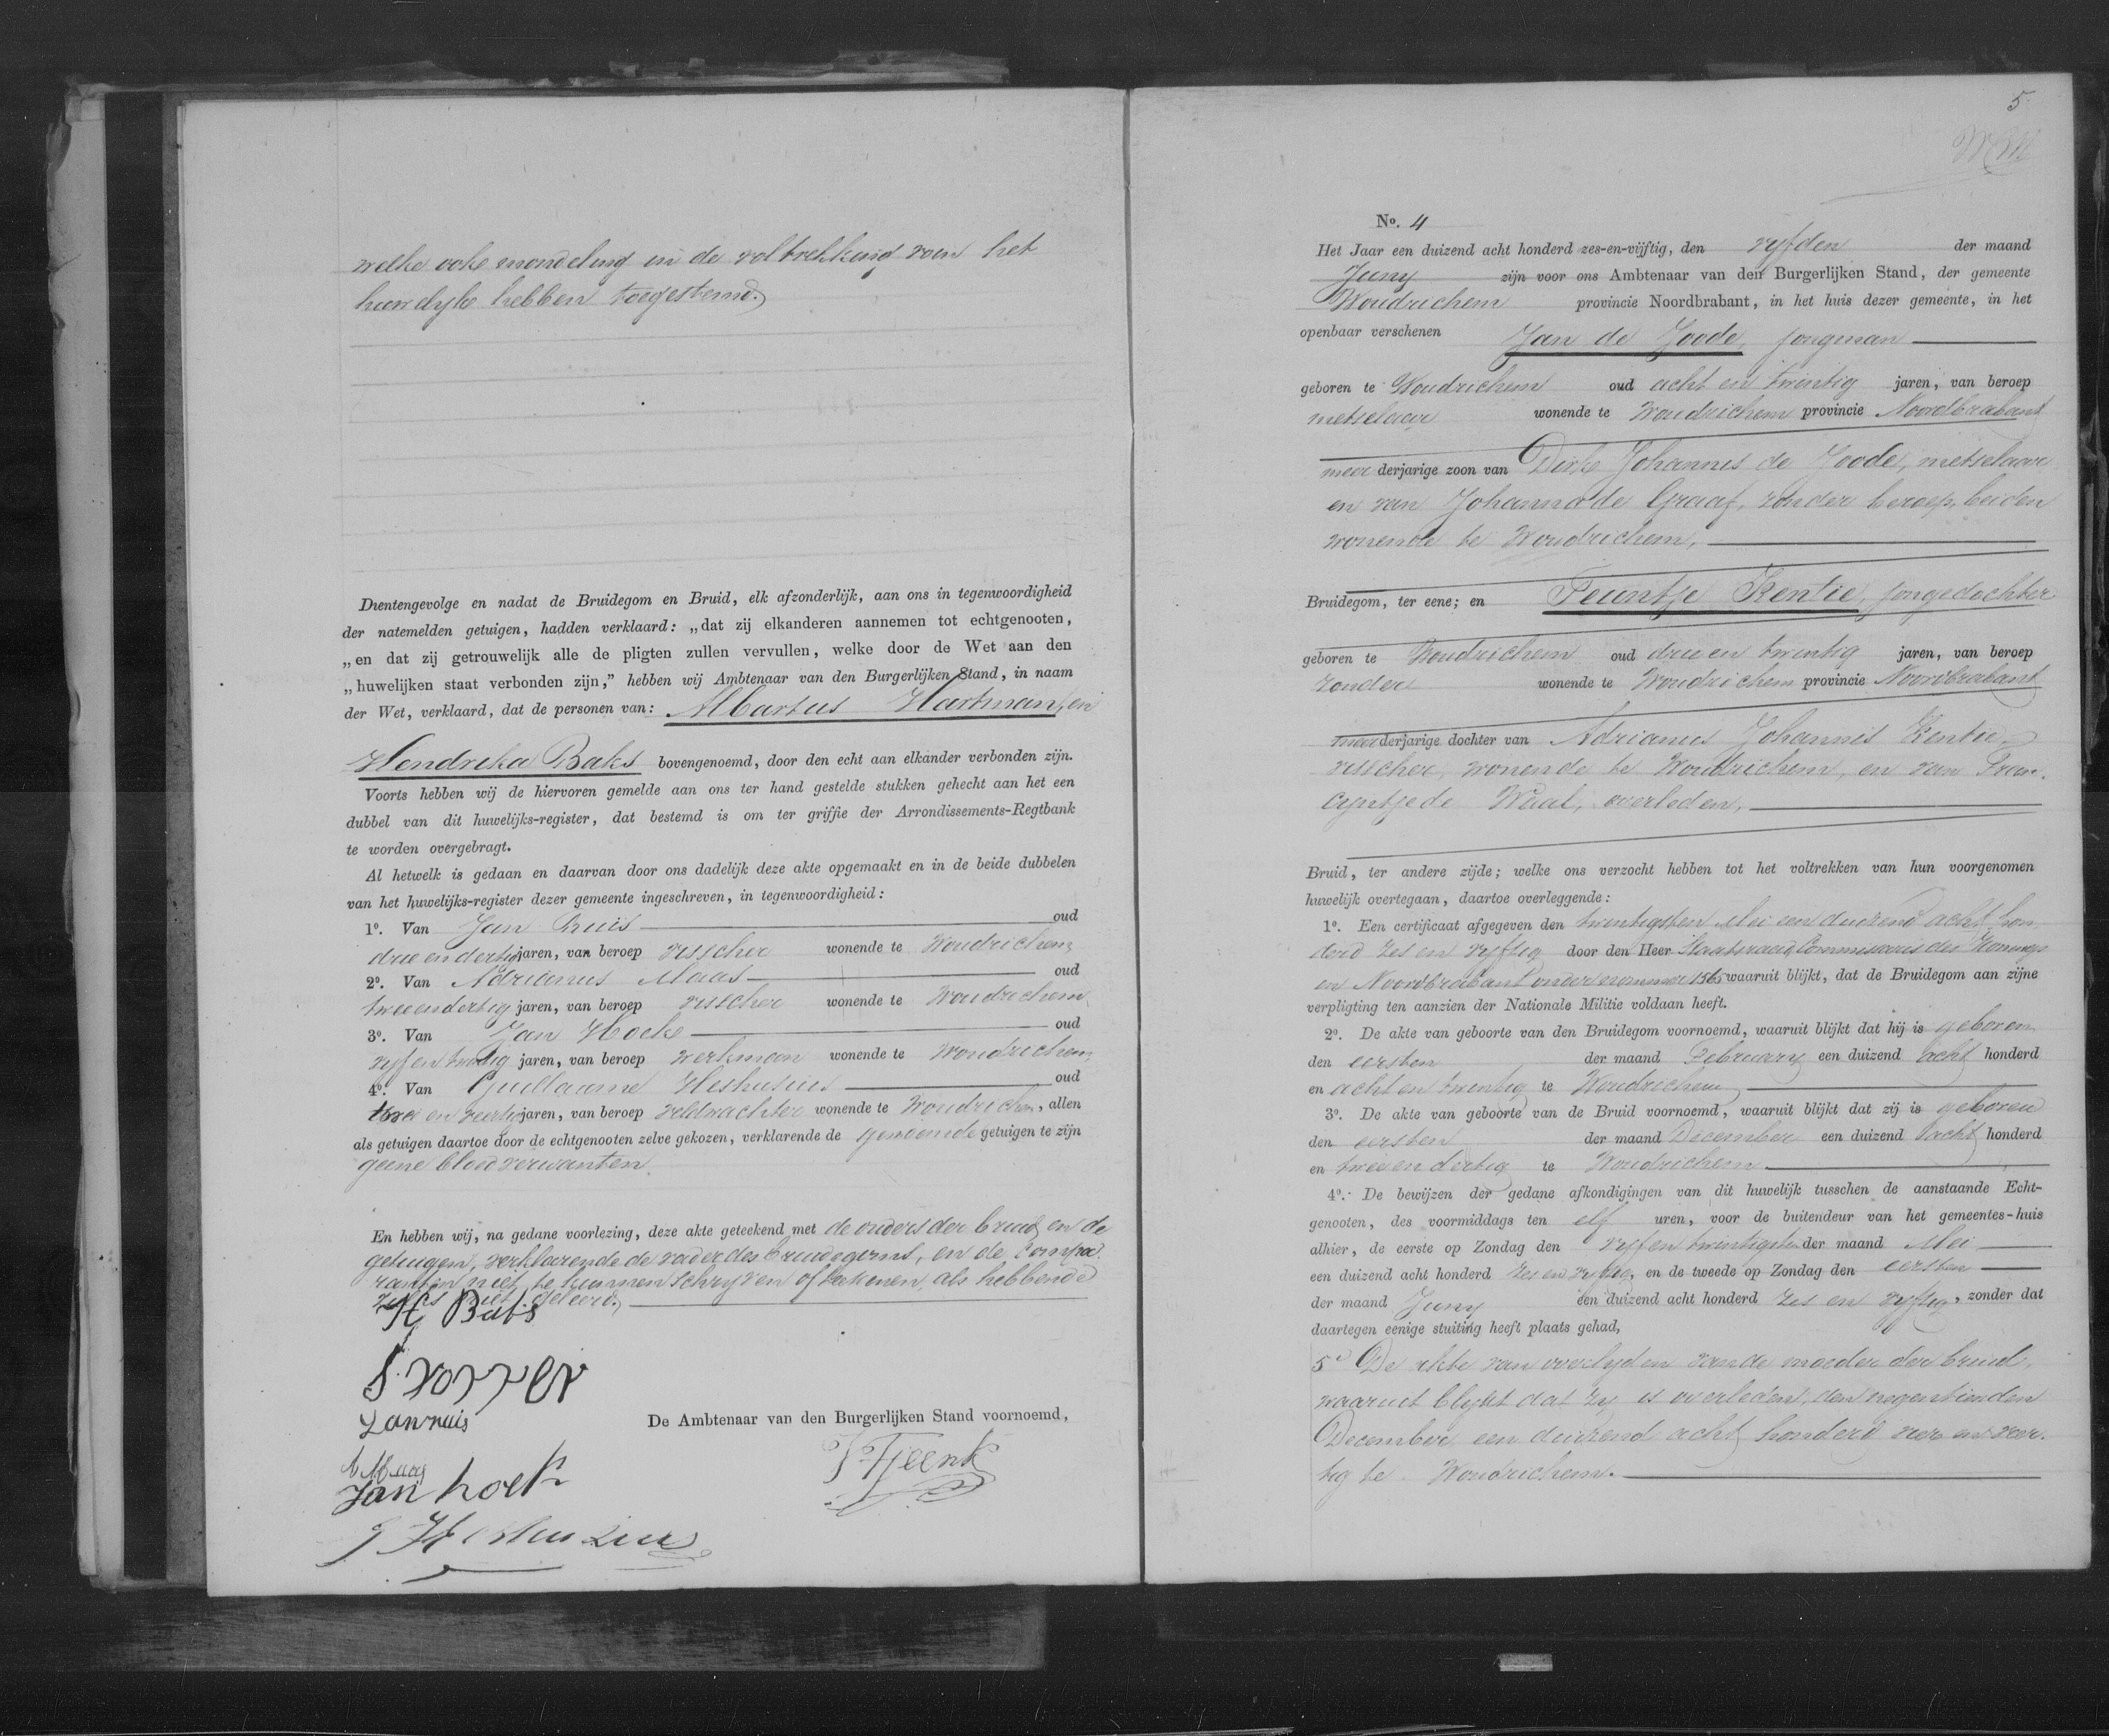 welke ook mondeling in de voltrekking van het
huwelijk hebben toegestemd.
Dientengevolge en nadat de Bruidegom en Bruid, elk afzonderlijk, aan ons in tegenwoordigheid
der natemelden getuigen, hadden verklaard: „dat zij elkanderen aannemen tot echtgenooten,
„en dat zij getrouwelijk alle de pligten zullen vervullen, welke door de Wet aan den
„huwelijken staat verbonden zijn,” hebben wij Ambtenaar van den Burgerlijken Stand, in naam
der Wet, verklaard, dat de personen van: Albartus Hartman, en
Hendrika Baks bovengenoemd, door den echt aan elkander verbonden zijn.
Voorts hebben wij de hiervoren gemelde aan ons ter hand gestelde stukken gehecht aan het een
dubbel van dit huwelijks-register, dat bestemd is om ter griffie der Arrondissements-Regtbank
te worden overgebragt.
Al hetwelk is gedaan en daarvan door ons dadelijk deze akte opgemaakt en in de beide dubbelen
van het huwelijks-register dezer gemeente ingeschreven, in tegenwoordigheid:
1o. Van Jan Ruis oud
drie en dertig jaren, van beroep visscher wonende te Woudrichem
2o. Van Adrianus Maas oud
twee en dertig jaren, van beroep visscher wonende te Woudrichem
3o. Van Jan Hoek oud
vyf en twintig jaren, van beroep werkman wonende te Woudrichem
4o. Van Guillaume Heshusius oud
en veertig jaren, van beroep veldwachter wonende te Woudrichem, allen
als getuigen daartoe door de echtgenooten zelve gekozen, verklarende de genoemde getuigen te zijn
geene bloedverwanten.
En hebben wij, na gedane voorlezing, deze akte geteekend met de ouders der bruid en de
getuigen, verklarende de vader des bruidegoms, en de compa
ranten niet te kunnen schryven of teekenen, als hebbende
zulks niet geleerd.
H Baks
Jan ruis
A Maas
De Ambtenaar van den Burgerlijken Stand voornoemd,
Jan hoek
Tjeenk
G Heshusius
5
No. 4
Het Jaar een duizend acht honderd zes-en-vijftig, den vyfden der maand
Juny zijn voor ons Ambtenaar van den Burgerlijken Stand, der gemeente
Woudrichem provincie Noordbrabant, in het huis dezer gemeente, in het
openbaar verschenen Jan de Joode, jongman
geboren te Woudrichem oud acht en twintig jaren, van beroep
metselaar wonende te Woudrichem provincie Noordbrabant
meerderjarige zoon van Dirk Johannes de Joode, metselaar
en van Johanna de Graaf, zonder beroep, beiden
wonende te Woudrichem,
Bruidegom, ter eene; en Teuntje Kentie, jongedochter
geboren te Woudrichem oud drie en twintig jaren, van beroep
zonder wonende te Woudrichem provincie Noordbrabant
meerderjarige dochter van Adrianus Johannis Kentie,
visscher, wonende te Woudrichem, en van Fran
cyntje de Waal, overleden,
Bruid, ter andere zijde; welke ons verzocht hebben tot het voltrekken van hun voorgenomen
huwelijk overtegaan, daartoe overleggende:
1o. Een certificaat afgegeven den twintigsten Mei een duizend acht hon
derd zes en vyftig door den Heer Staatsraad Commissaris des Konings
in Noordbrabant onder nommer 1565 waaruit blijkt, dat de Bruidegom aan zijne
verpligting ten aanzien der Nationale Militie voldaan heeft.
2o. De akte van geboorte van den Bruidegom voornoemd, waaruit blijkt dat hij is geboren
den eersten der maand February een duizend acht honderd
en acht en twintig te Woudrichem
3o. De akte van geboorte van de Bruid voornoemd, waaruit blijkt dat zij is geboren
den eersten der maand December een duizend acht honderd
en twee en dertig te Woudrichem
4o. De bewijzen der gedane afkondigingen van dit huwelijk tusschen de aanstaande Echt-
genooten, des voormiddags ten elf uren, voor de buitendeur van het gemeentes-huis
alhier, de eerste op Zondag den vyf en twintigsten der maand Mei
een duizend acht honderd zes en vyftig, en de tweede op Zondag den eersten
der maand Juny een duizend acht honderd zes en vyftig, zonder dat
daartegen eenige stuiting heeft plaats gehad,
5o De akte van overlyden van de moeder der bruid,
waaruit blykt dat zy is overleden, den negentienden
December een duizend acht honderd vier en veer
tig te Woudrichem.